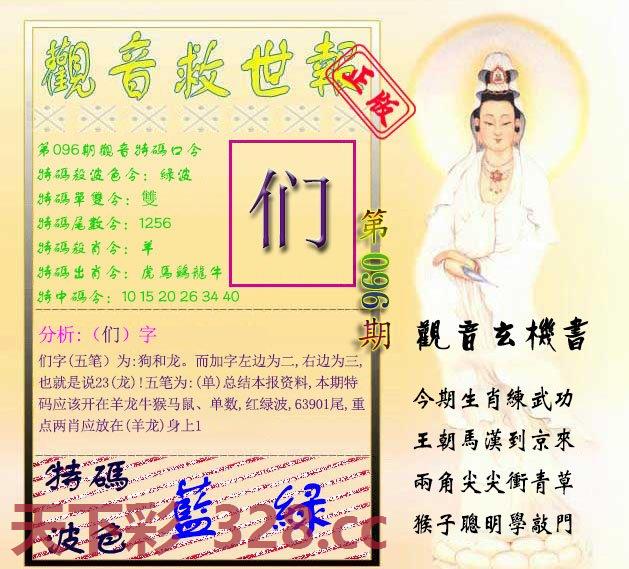 觀音救世報
正版
第096期觀音特碼口令
特碼殺波色令：綠波
特碼單雙令：雙
特碼尾數令：1256
特碼殺肖令：羊
特碼出肖令：虎馬鷄龍牛
特中碼令：10 15 20 26 34 40
们
第096期
分析:（们）字
们字(五笔）为:狗和龙。而加字左边为二,右边为三,
也就是说23(龙)!五笔为:(单)总结本报资料,本期特
码应该开在羊龙牛猴马鼠、单数,红绿波,63901尾,重
点两肖应放在(羊龙)身上1
特碼
波色
藍 綠
天下彩 328.cc
觀音玄機書
今期生肖練武功
王朝馬漢到京來
兩角尖尖衝青草
猴子聰明學敲門